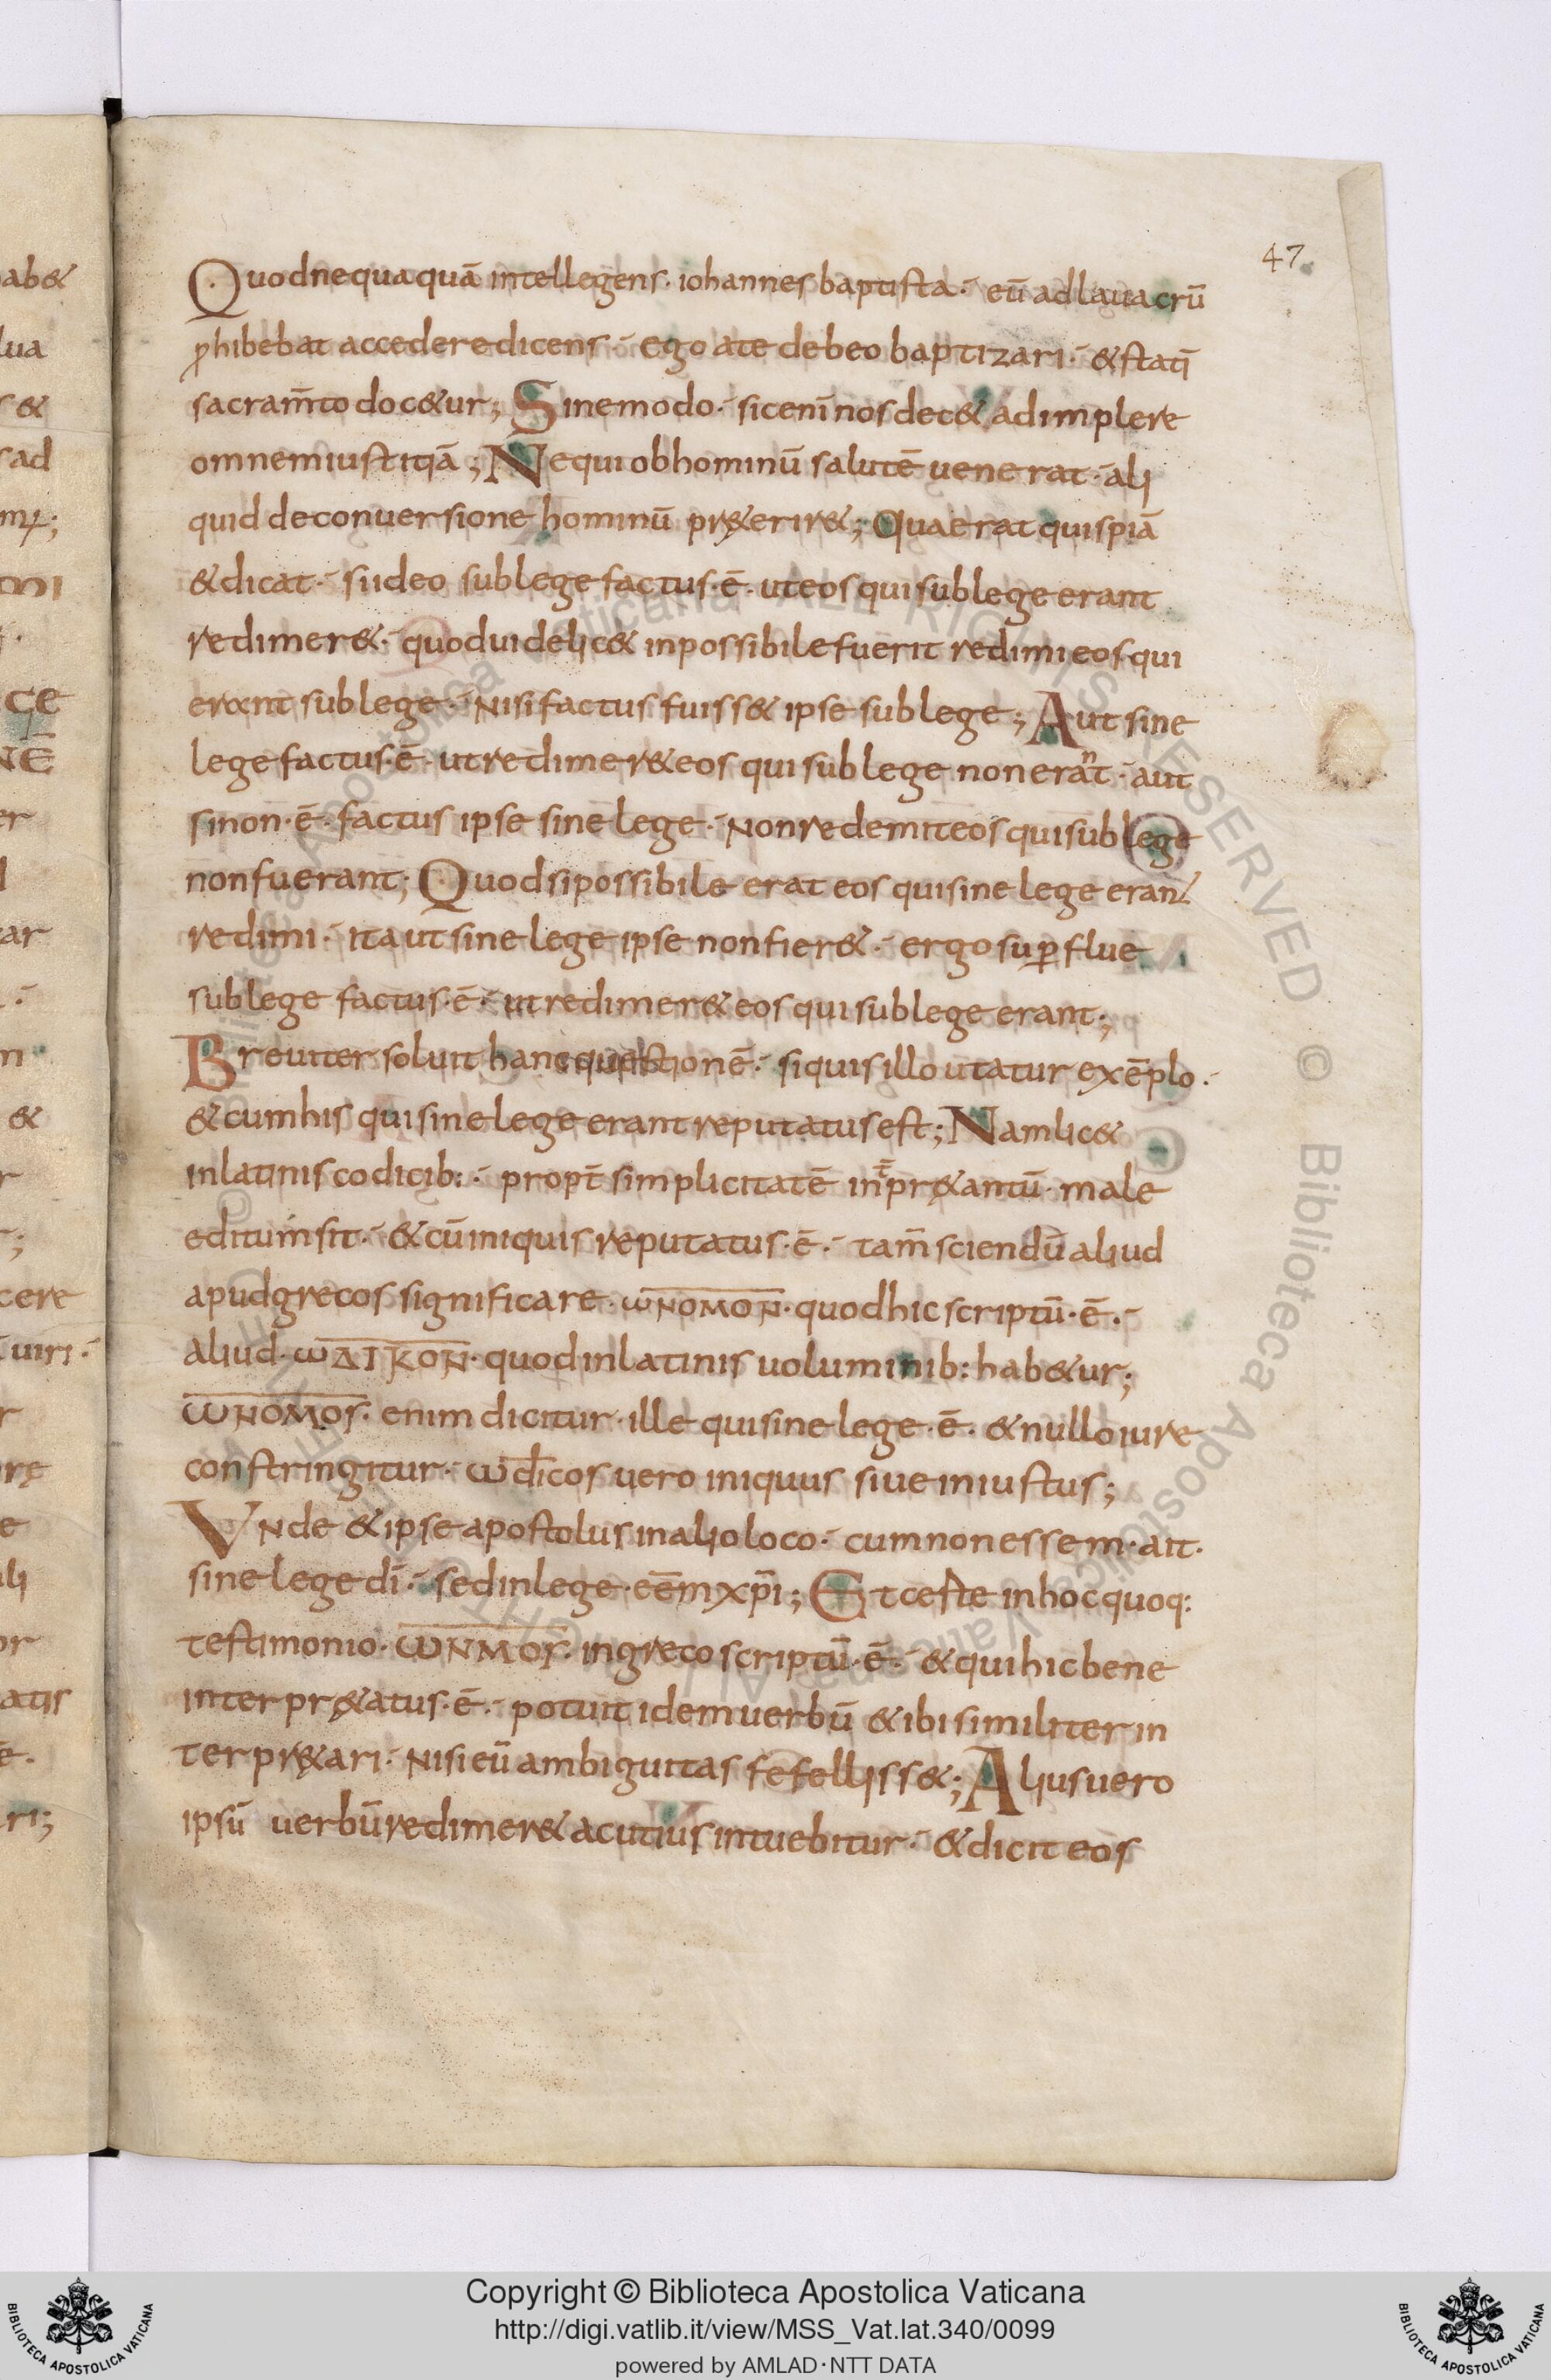 47
Quodnequaquā intellegens· iohannes baptista·⁻ eū adlauacrū
ꝓhibebat accedere dicens·⁻ ego ate debeo baptizari·⁻ &stati̅
sacram̅to doc&ur; Sinemodo·⁻ siceni̅ nos dec& adimplere
omnemiustitiā; Nequi obhominū salutē uenerat·⁻ ali
quid deconuersione hominū pr&erir&; Quaerat quispiā
&dicat·⁻ siideo sublege factus·ē· uteos quisublege erant
redimer&·⁻ quoduidelic& inpossibilefuerit redimi eosqui
erant sublege·⁻ Nisifactus fuiss& ipse sublege; Aut sine
lege factus·ē· utredimer&eos quisublege nonerant·⁻ aut
sinon·ē· factus ipse sinelege·⁻ Nonredemiteos quisublege
nonfuerant; Quodsipossibile erat eos quisine lege erant
redimi·⁻ itaut sinelege ipse nonfier&·⁻ ergo suꝑflue
sublege factus·ē·⁻ utredimer& eos quisublege erant;
Breuiter soluit hanc questionē·⁻ siquis illo utatur exēplo·⁻
&cumhis qui sinelege erant reputatus est; Namlic&
inlatinis codicib:·⁻ propt̄ simplicitatē int̄pr&antū· male
editumsit·⁻ &cūiniquis reputatus·ē·⁻ tam̅ sciendū aliud
apudgrecos significare· ω̅NOMON· quodhic scriptū·ē·⁻
aliud· ωΔIKON· quodinlatinis uoluminib: hab&ur;
ωNOMOS· enim dicitur· ille quisine lege·ē· &nulloiure
constringitur·⁻ ωdicos uero iniquus siue iniustus;
Vnde &ipse apostolus inalio loco·⁻ cumnonessem· ait·
sinelege di̅·⁻ sedinlege·eēm xp̅i; Et certe inhoc quoq:
testimonio· ωNMOS· ingreco scriptū·ē·⁻ &quihicbene
interpr&atus·ē·⁻ potuit idemuerbū &ibi similiter in
terpr&ari·⁻ Nisi eū ambiguitas fefelliss&; Aliusuero
ipsū uerbūredimer& acutius intuebitur·⁻ &dicit eos
ab&
lua
s&
sad
ce
NĒ
er
ar
n
&
r
cere
uiri·⁻
r
rę
e
ali
or
atis
ē·
ri;
Biblioteca Apostolica Vaticana ALL RIGHTS RESERVED ©
Copyright © Biblioteca Apostolica Vaticana
http://digi.vatlib.it/view/MSS_Vat.lat.340/0099
powered by AMLAD·NTT DATA
BIBLIOTECA APOSTOLICA VATICANA
BIBLIOTECA APOSTOLICA VATICANA